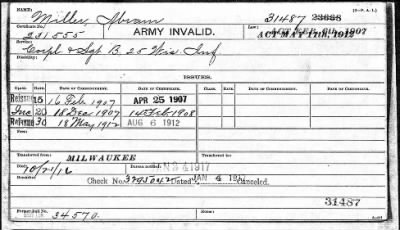 NAME: Miller, Abram 31487 23688 (3—P. A. I.)
Certificate No. 231555 ARMY INVALID. ACT FEB. 6th, 1907
ACT MAY 11th, 1912
Service: Corpl & Sgt B. 25 Wis Inf
Disability:
ISSUES.
CLASS. RATE. DATE OF COMMENCEMENT. DATE OF CERTIFICATE. CLASS. RATE. DATE OF COMMENCEMENT. DATE OF CERTIFICATE.
Reissue 15 16 Feb 1907 APR 25 1907
Inc 20 18 Dec 1907 14 Feb 1908
Reissue 30 18 May 1912 AUG 6 1912
Transferred from MILWAUKEE Transferred to
Died: 10/21/16 Bureau notified: JAN 3 4 1917
Remarks: Check No. Dated JAN 4 1917 Canceled.
31487
Former Roll No. 34570.